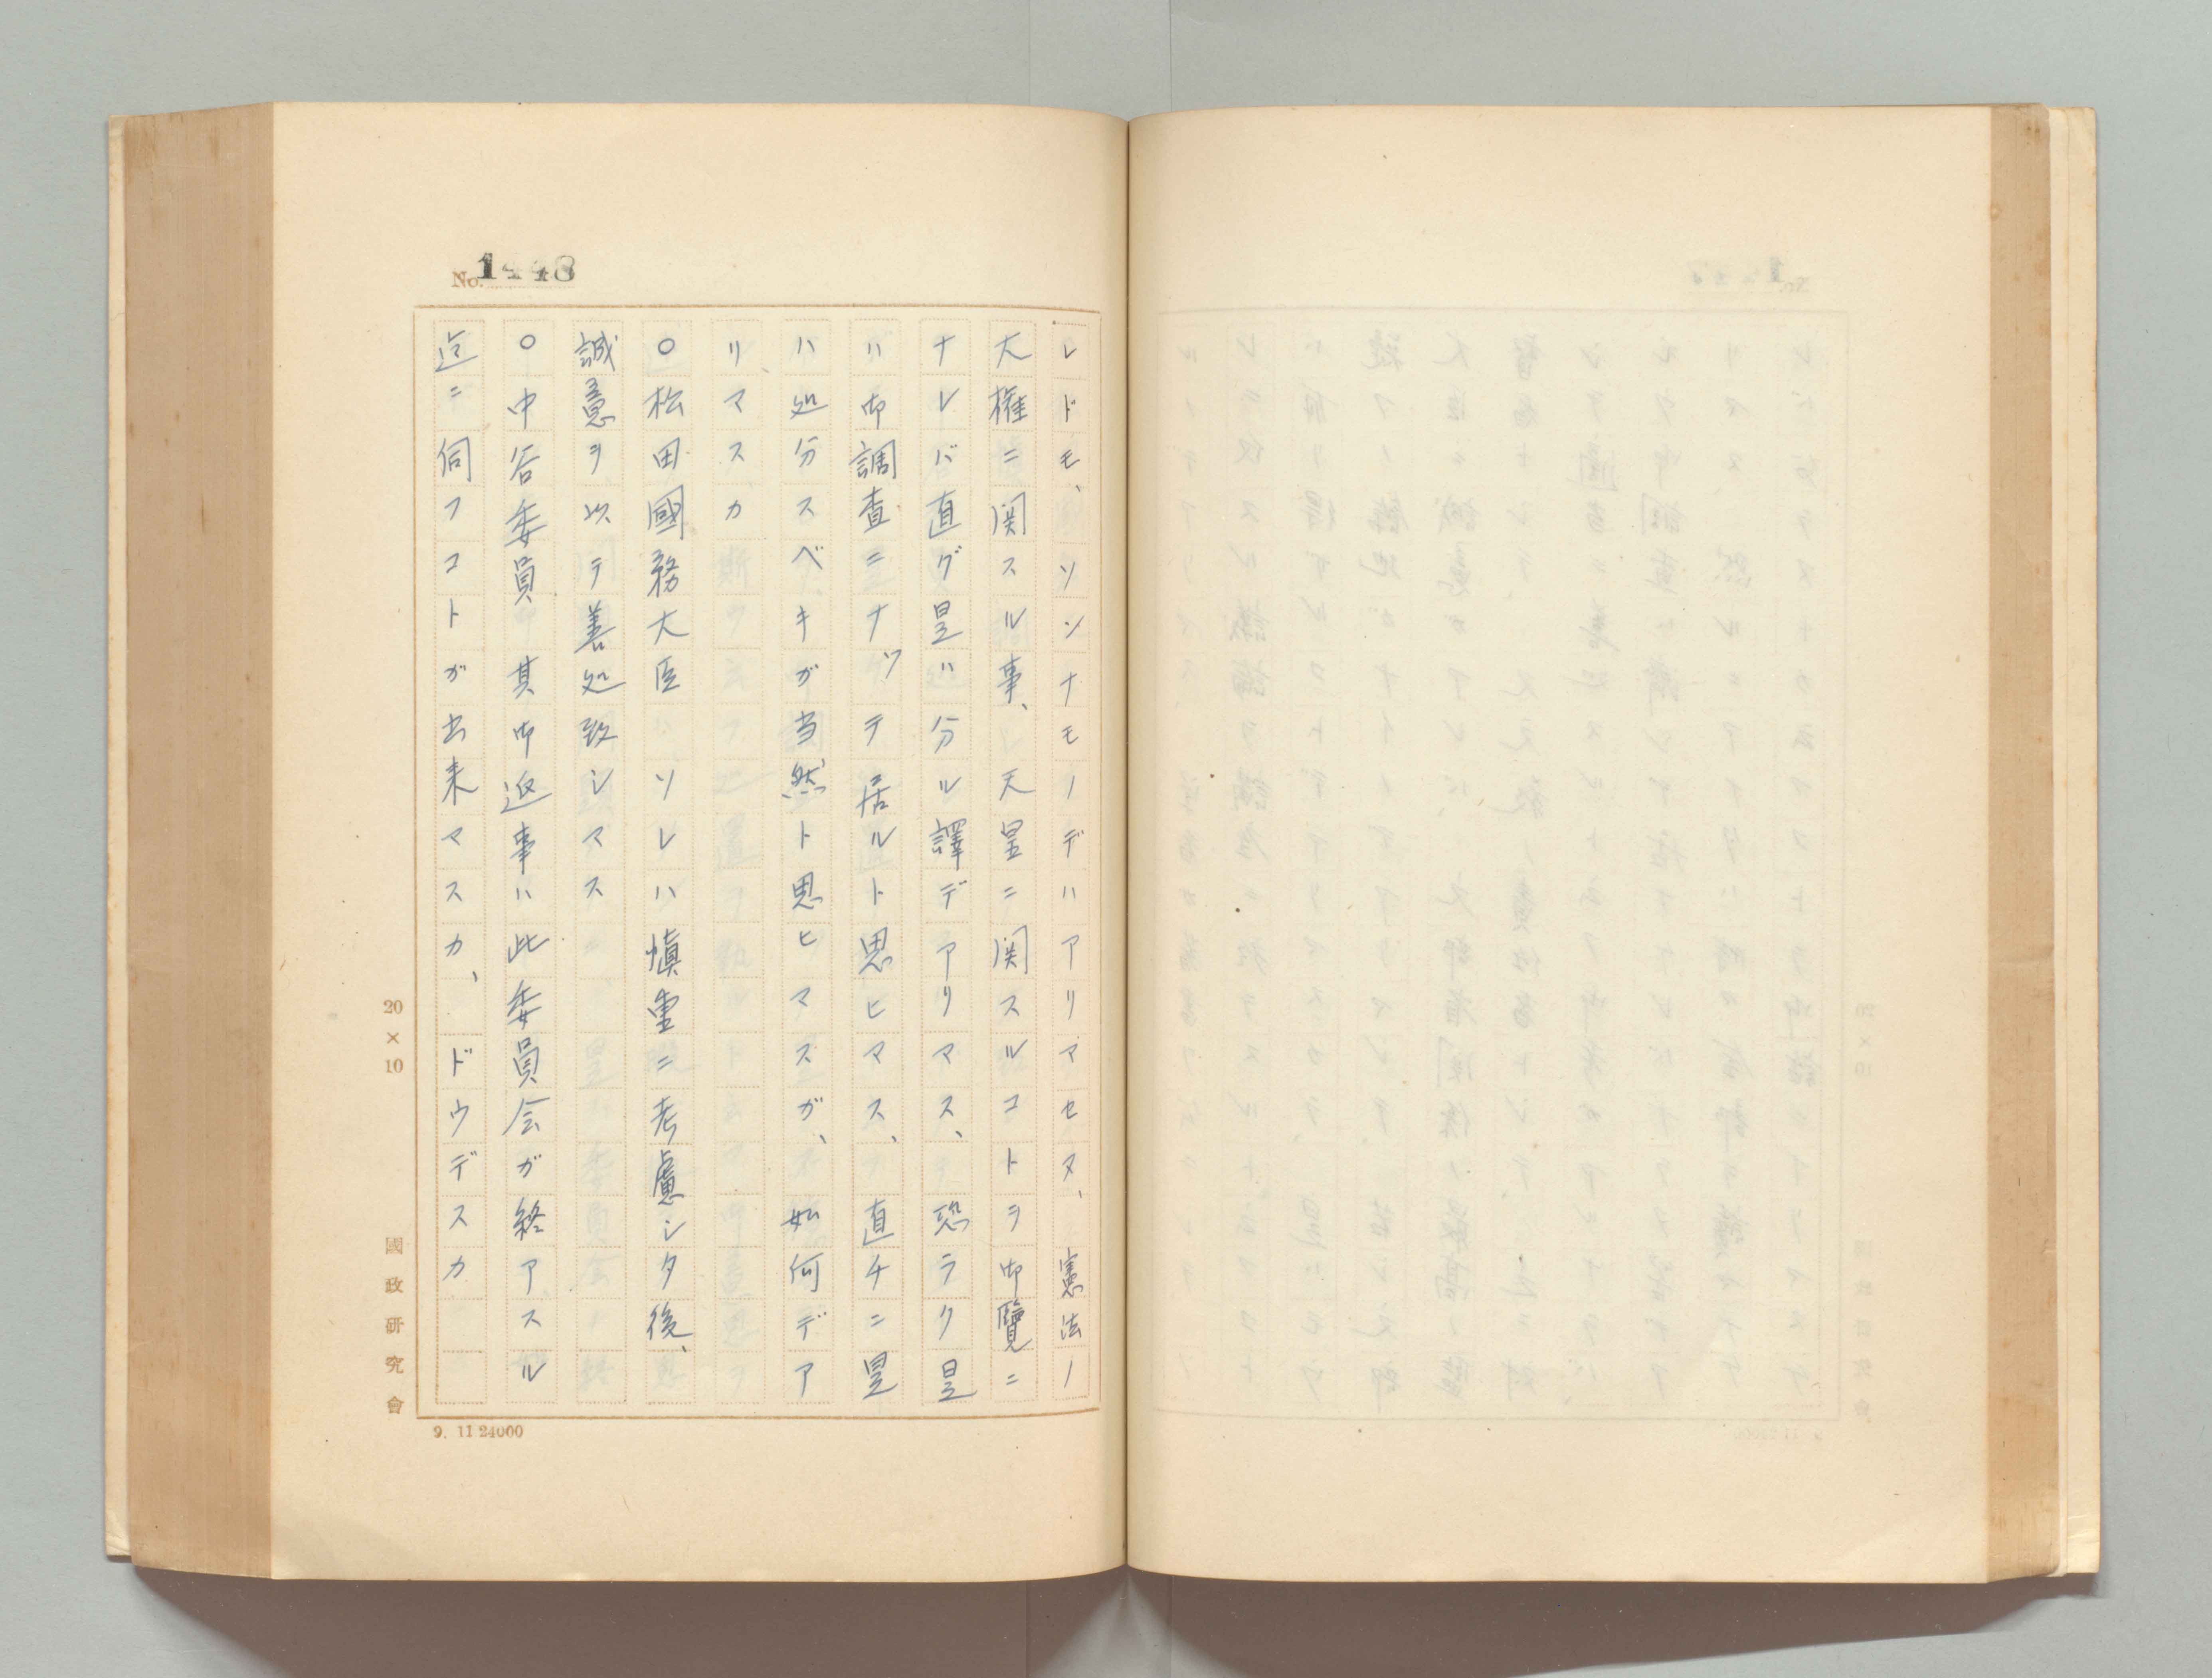 No. 1448
レドモ、ソンナモノデハアリマセヌ、憲法ノ
大権ニ関スル事、天皇ニ関スルコトヲ御覽ニ
ナレバ直グ是ハ分ル譯デアリマス、恐ラク是
ハ御調査ニナツテ居ルト思ヒマス、直チニ是
ハ処分スベキガ当然ト思ヒマスガ、如何デア
リマスカ
○松田國務大臣 ソレハ慎重ニ考慮シタ後、
誠意ヲ以テ善処致シマス
○中谷委員 其御返事ハ此委員会ガ終アスル
迄ニ伺フコトガ出来マスカ、ドウデスカ
20×10
國政研究會
9. 11 24000